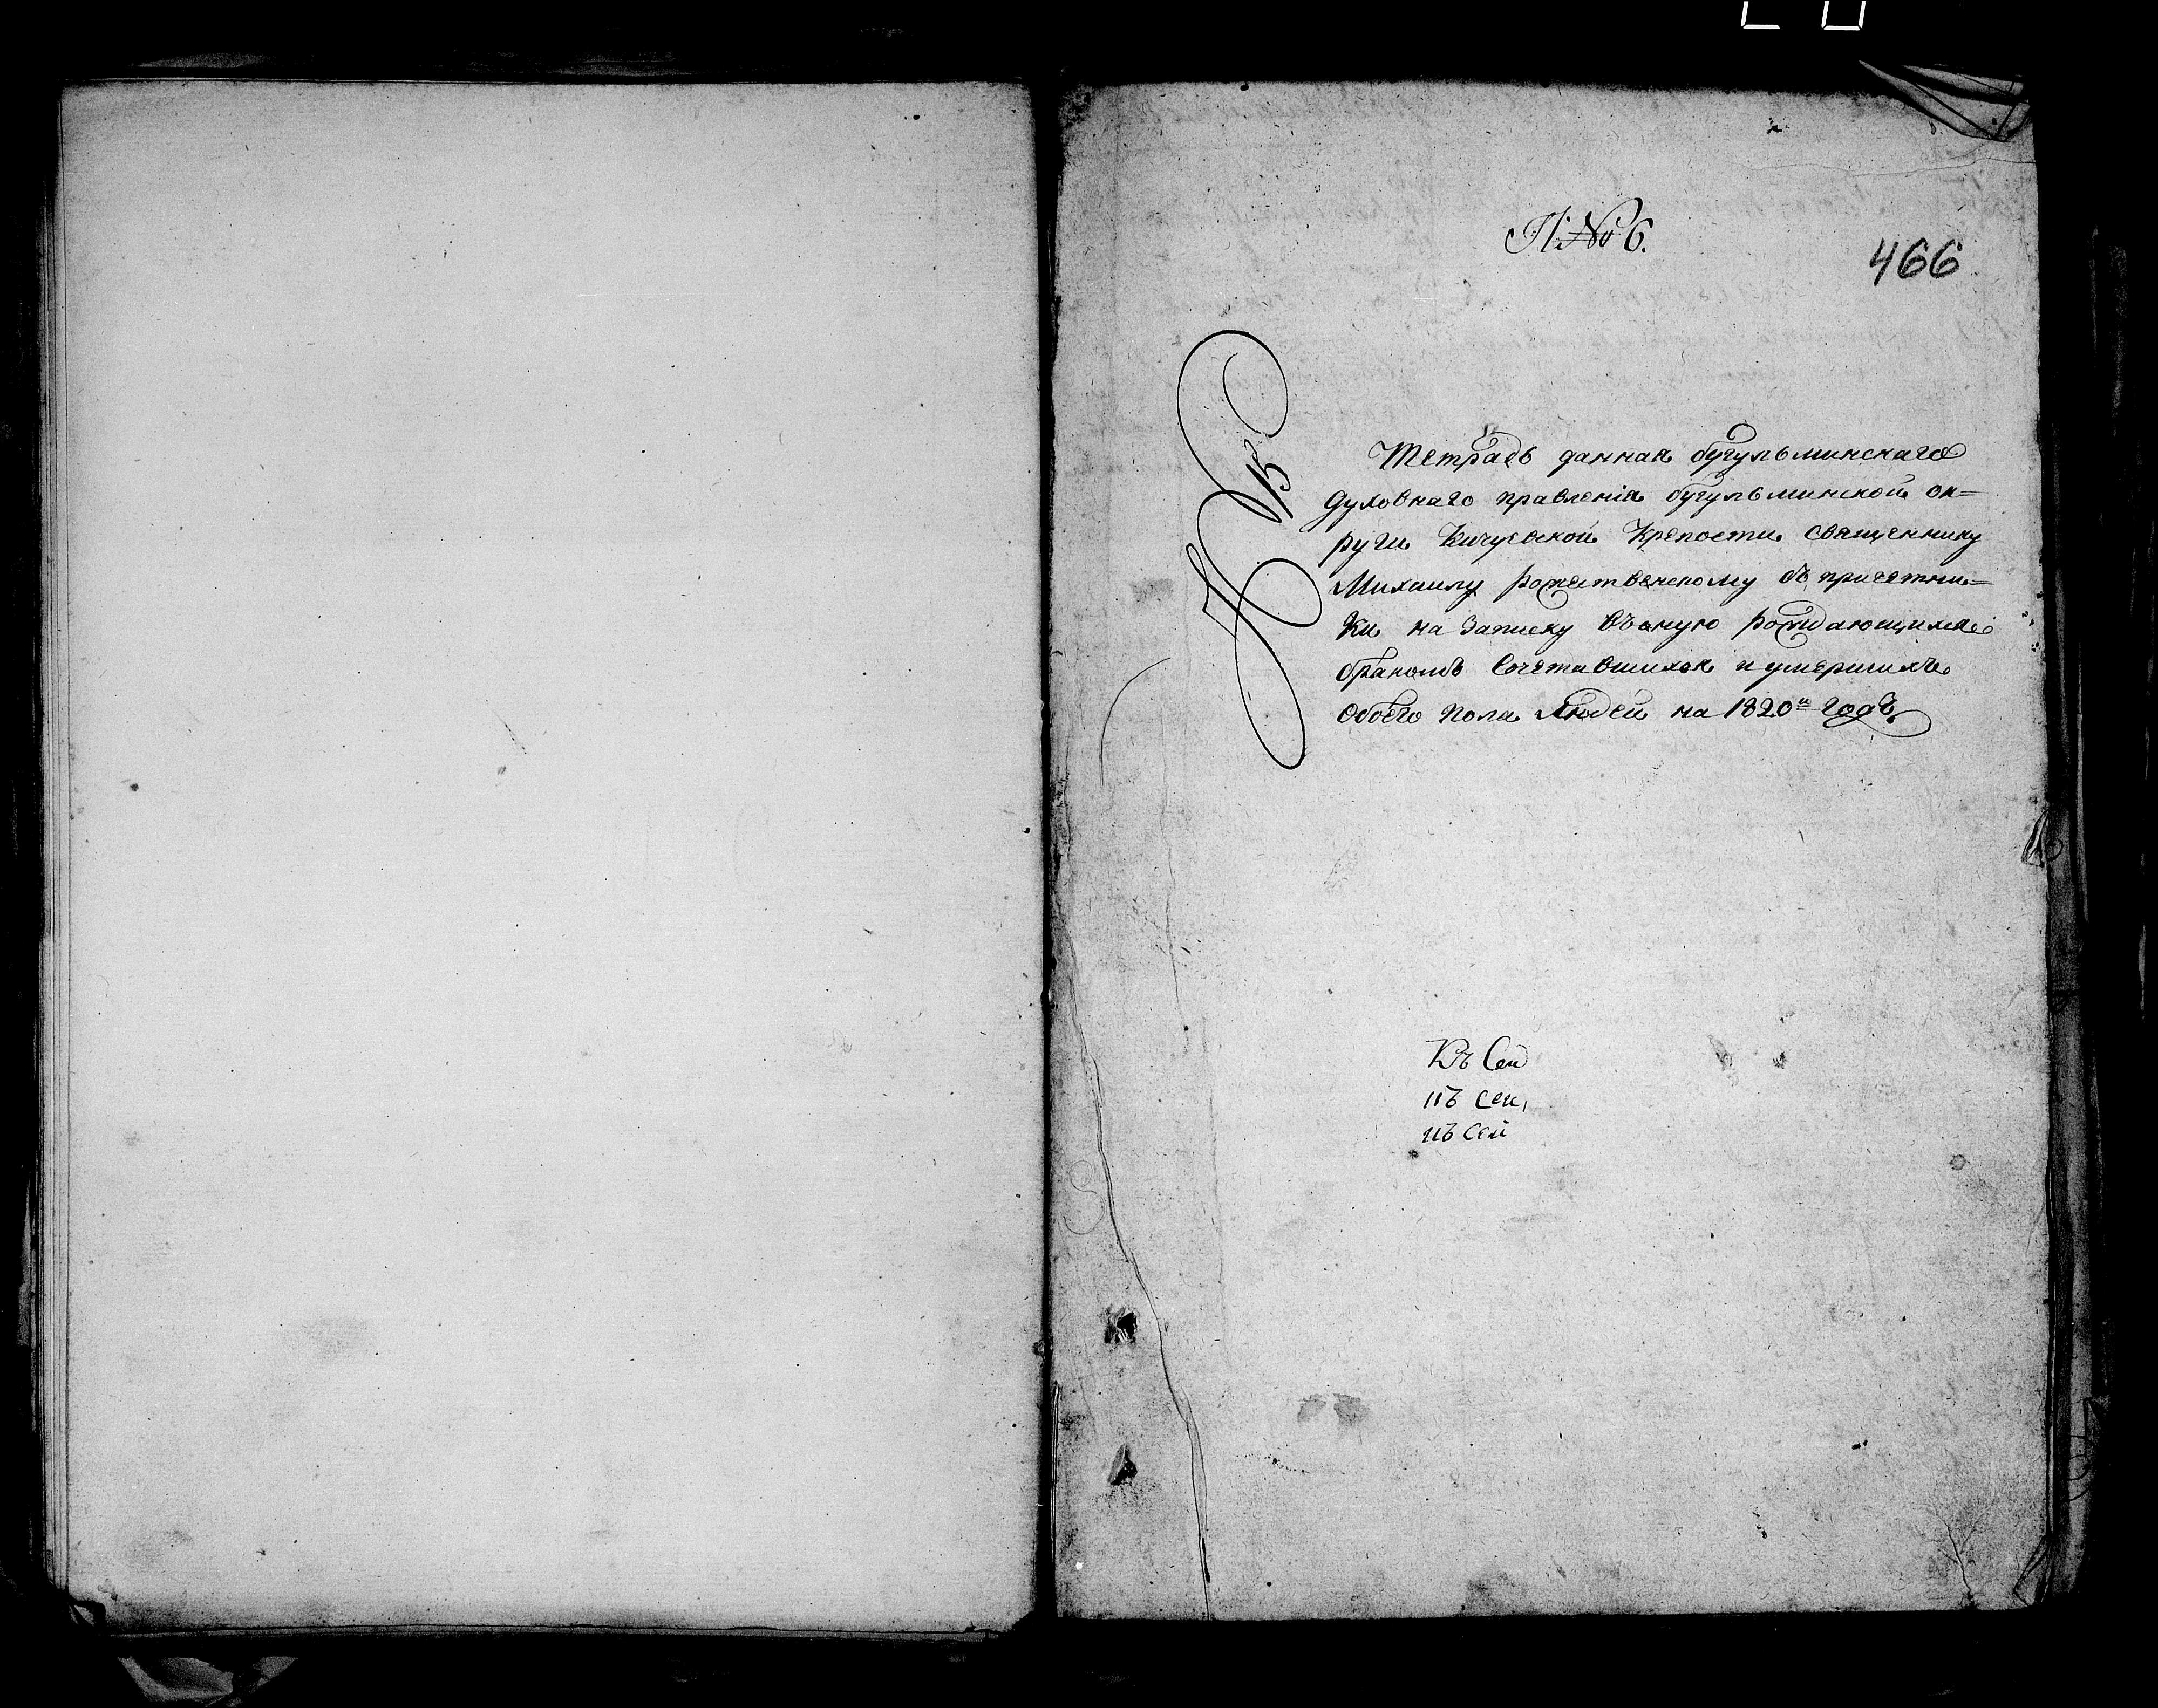 П: № 6.
466
Тетрадь данная бугульминскаго
духовнаго правленія бугульминской ок=
руги Кичуевской Крепости священнику
Михаилу рожественскому съ причетни=
ки на записку въ оную рождающихся
бракомъ сочетавшихся и умершихъ
обоего пола людей на 1820й годъ
Къ Сей
къ сей
къ сей